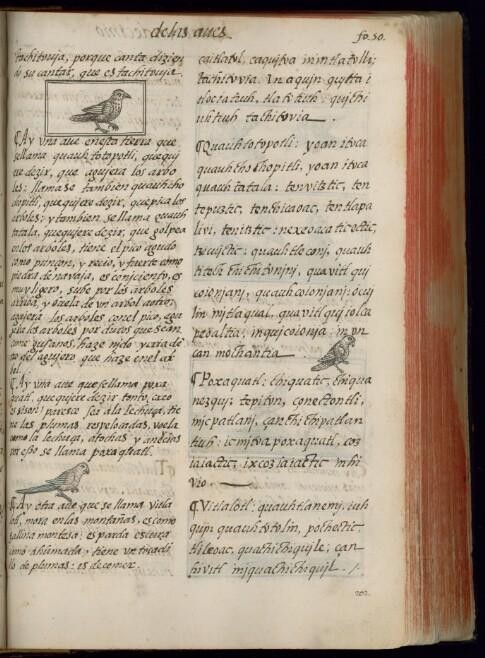 de las aues
fo. 50.
tachituuja, porque canta dizien
do su cantar, que es tachituuja.
¶ Ay vna aue en esta tierra que
se llama quauhtotopotli, que qui
ere dezir, que agujera los arbo
les: llamase tambien quauhcho
chopitli, que quiere dezir, que pica los
arboles: y tambien se llama quauh
tatala, que quiere dezir, que golpea
en los arboles, tiene el pico agudo
como punçon, y rezio, y fuerte como
piedra de nauaja, es cenjciento, es
muy ligero, sube por los arboles
arriba, y buela de vn arbol a otro;
agujera los arboles con el pico, co
me los arboles por duros que sean
come gusanos, haze njdo y cria de
tro del agujero que haze en el ar
bol.
¶ Ay vna aue que se llama poxa
quatl, que quiere dezir tonto,
paresce ser a la lechuza, tie
ne las plumas respeluzadas, vuela
como la lechuza,
por eso se llama poxaquatl.
¶ Ay otra aue que se llama vitla
lotl, mora en las montañas, es como
gallina montesa: es parda escura
como ahumada: tiene vn tocadi
llo de plumas: es de comer.
caitlatol, caquitoa in intlatolli;
tachitovia. In aquin quitta i
tlocia tiuh, tlatotiuh: quichi
uhtiuh tachitovia.
¶ Quauhtotopotli: yoan itoca
quauhchochopitli, yoan itoca
quauhtatala: tenvitztic, ten
tepuztic, tenchicaoac, tentlapa
livi, tenitztic: nexeoacaticectic,
tzicuijctic: quauhtleconj, quauh
titech chichitvnjnj, quavitl qui
coionjanj, quauhcoionjanj: ocuj
lin mjtlaqual, quavitl quijolca
pitzaltia, in qujcoionja: in vn
can mochantia.
¶ Poxaquatl: chiquatic, chiqua
nezquj: tepiton, conectontli;
mjcpatlanj, çan chichipatlan
tiuh: ic mjtoa poxaquatl,
iaiactic, ixcoziaiactic in hi
vio.
¶ Vitlalotl: quauhtlanemj, iuh
qujn quauhtotolin, pochectic
tlileoac, quachichiquile; çan
hivitl mjquachichiquil.
202